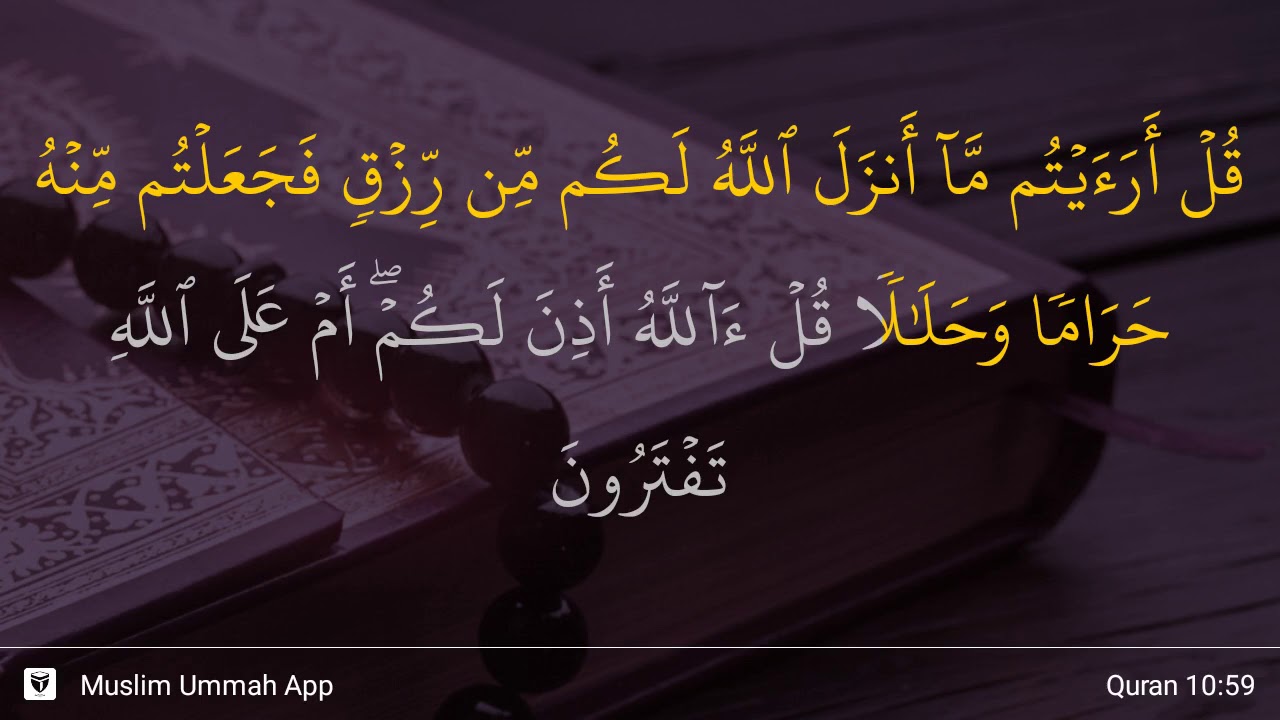 قُلْ أَرَءَيْتُم مَّآ أَنزَلَ ٱللَّهُ لَكُم مِّن رِّزْقٍ فَجَعَلْتُم مِّنْهُ
حَرَامًا وَحَلَـٰلًا قُلْ ءَآللَّهُ أَذِنَ لَكُمْ ۖ أَمْ عَلَى ٱللَّهِ
تَفْتَرُونَ
Muslim Ummah App
Quran 10:59